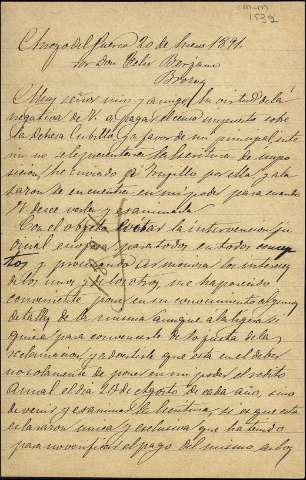 Arroyo del Puerco 20 de Enero 1891.
Sor Don Felix Borjano
Brozas
Muy señor mio y amigo: En virtud de la
negativa de V. a pagar el censo impuesto sobre
la dehesa Cubillo y a favor de mi principal inte
rin no se le presentara la escritura de impo
sicion, he enviado a Trujillo por ella y a la
sazon se encuentra en mi poder para cuando
V. desee verla y examinarla.
Con el objeto de evitar la intervencion ju
dicial enojosa para todos en todos
y procurando armonizar los intereses
de los unos y de los otros, me ha parecido
conveniente poner en su conocimiento algunos
detalles de la misma aunque a la ligera si
quiera para convencerle de lo justa de la
reclamacion y advertirle que esta en el deber
no solamente de poner en mi poder el redito
anual el dia 28 de Agosto de cada año, sino
de venir y examinar la escritura, si es que esta
es la razon unica y exclusiva que ha tenido
para no verificar el pago del mismo,